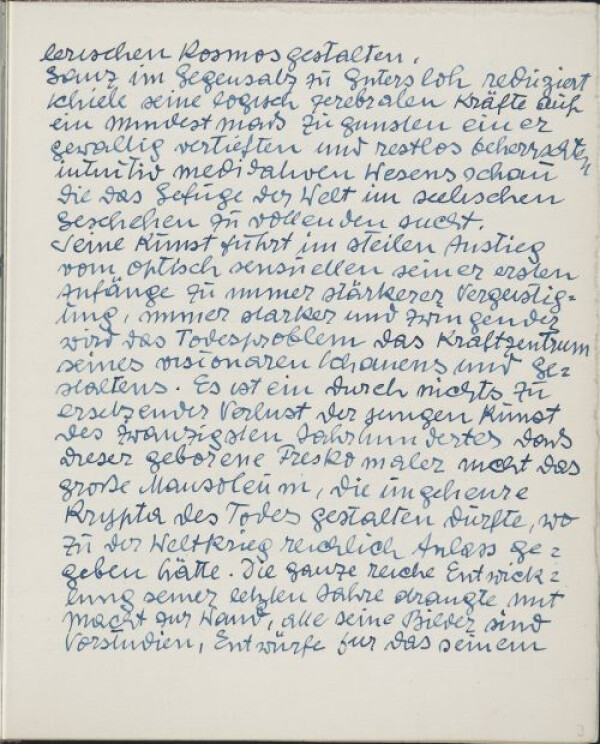 lerischen Kosmos gestalten.
Ganz im Gegensatz zu Gütersloh reduziert
Schiele seine logisch zerebralen Kräfte auf
ein Mindestmass zu gunsten einer
gewaltig vertieften und restlos beherrschten
intuitiv meditativen Wesensschau
die das Gefüge der Welt im seelischen
Geschehen zu vollenden sucht.
Seine Kunst führt im steilen Anstieg
vom optisch sensuellen seiner ersten
Anfänge zu immer stärkerer Vergeistig=
ung, immer starker und zwingender
wird das Todesproblem das Kraftzentrum
seines visionaren Schauens und Ge=
staltens. Es ist ein durch nichts zu
ersetzender Verlust der jungen Kunst
des zwanzigsten Jahrhundertes dass
dieser geborene Freskomaler nicht das
große Mausoleum, die ungeheure
Krypta des Todes gestalten durfte, wo
zu der Weltkrieg reichlich Anlass ge=
geben hätte. Die ganze reiche Entwick=
lung seiner letzten Jahre drangte mit
Macht zur Wand, alle seine Bilder sind
Vorstudien, Entwürfe fur das seinem
3